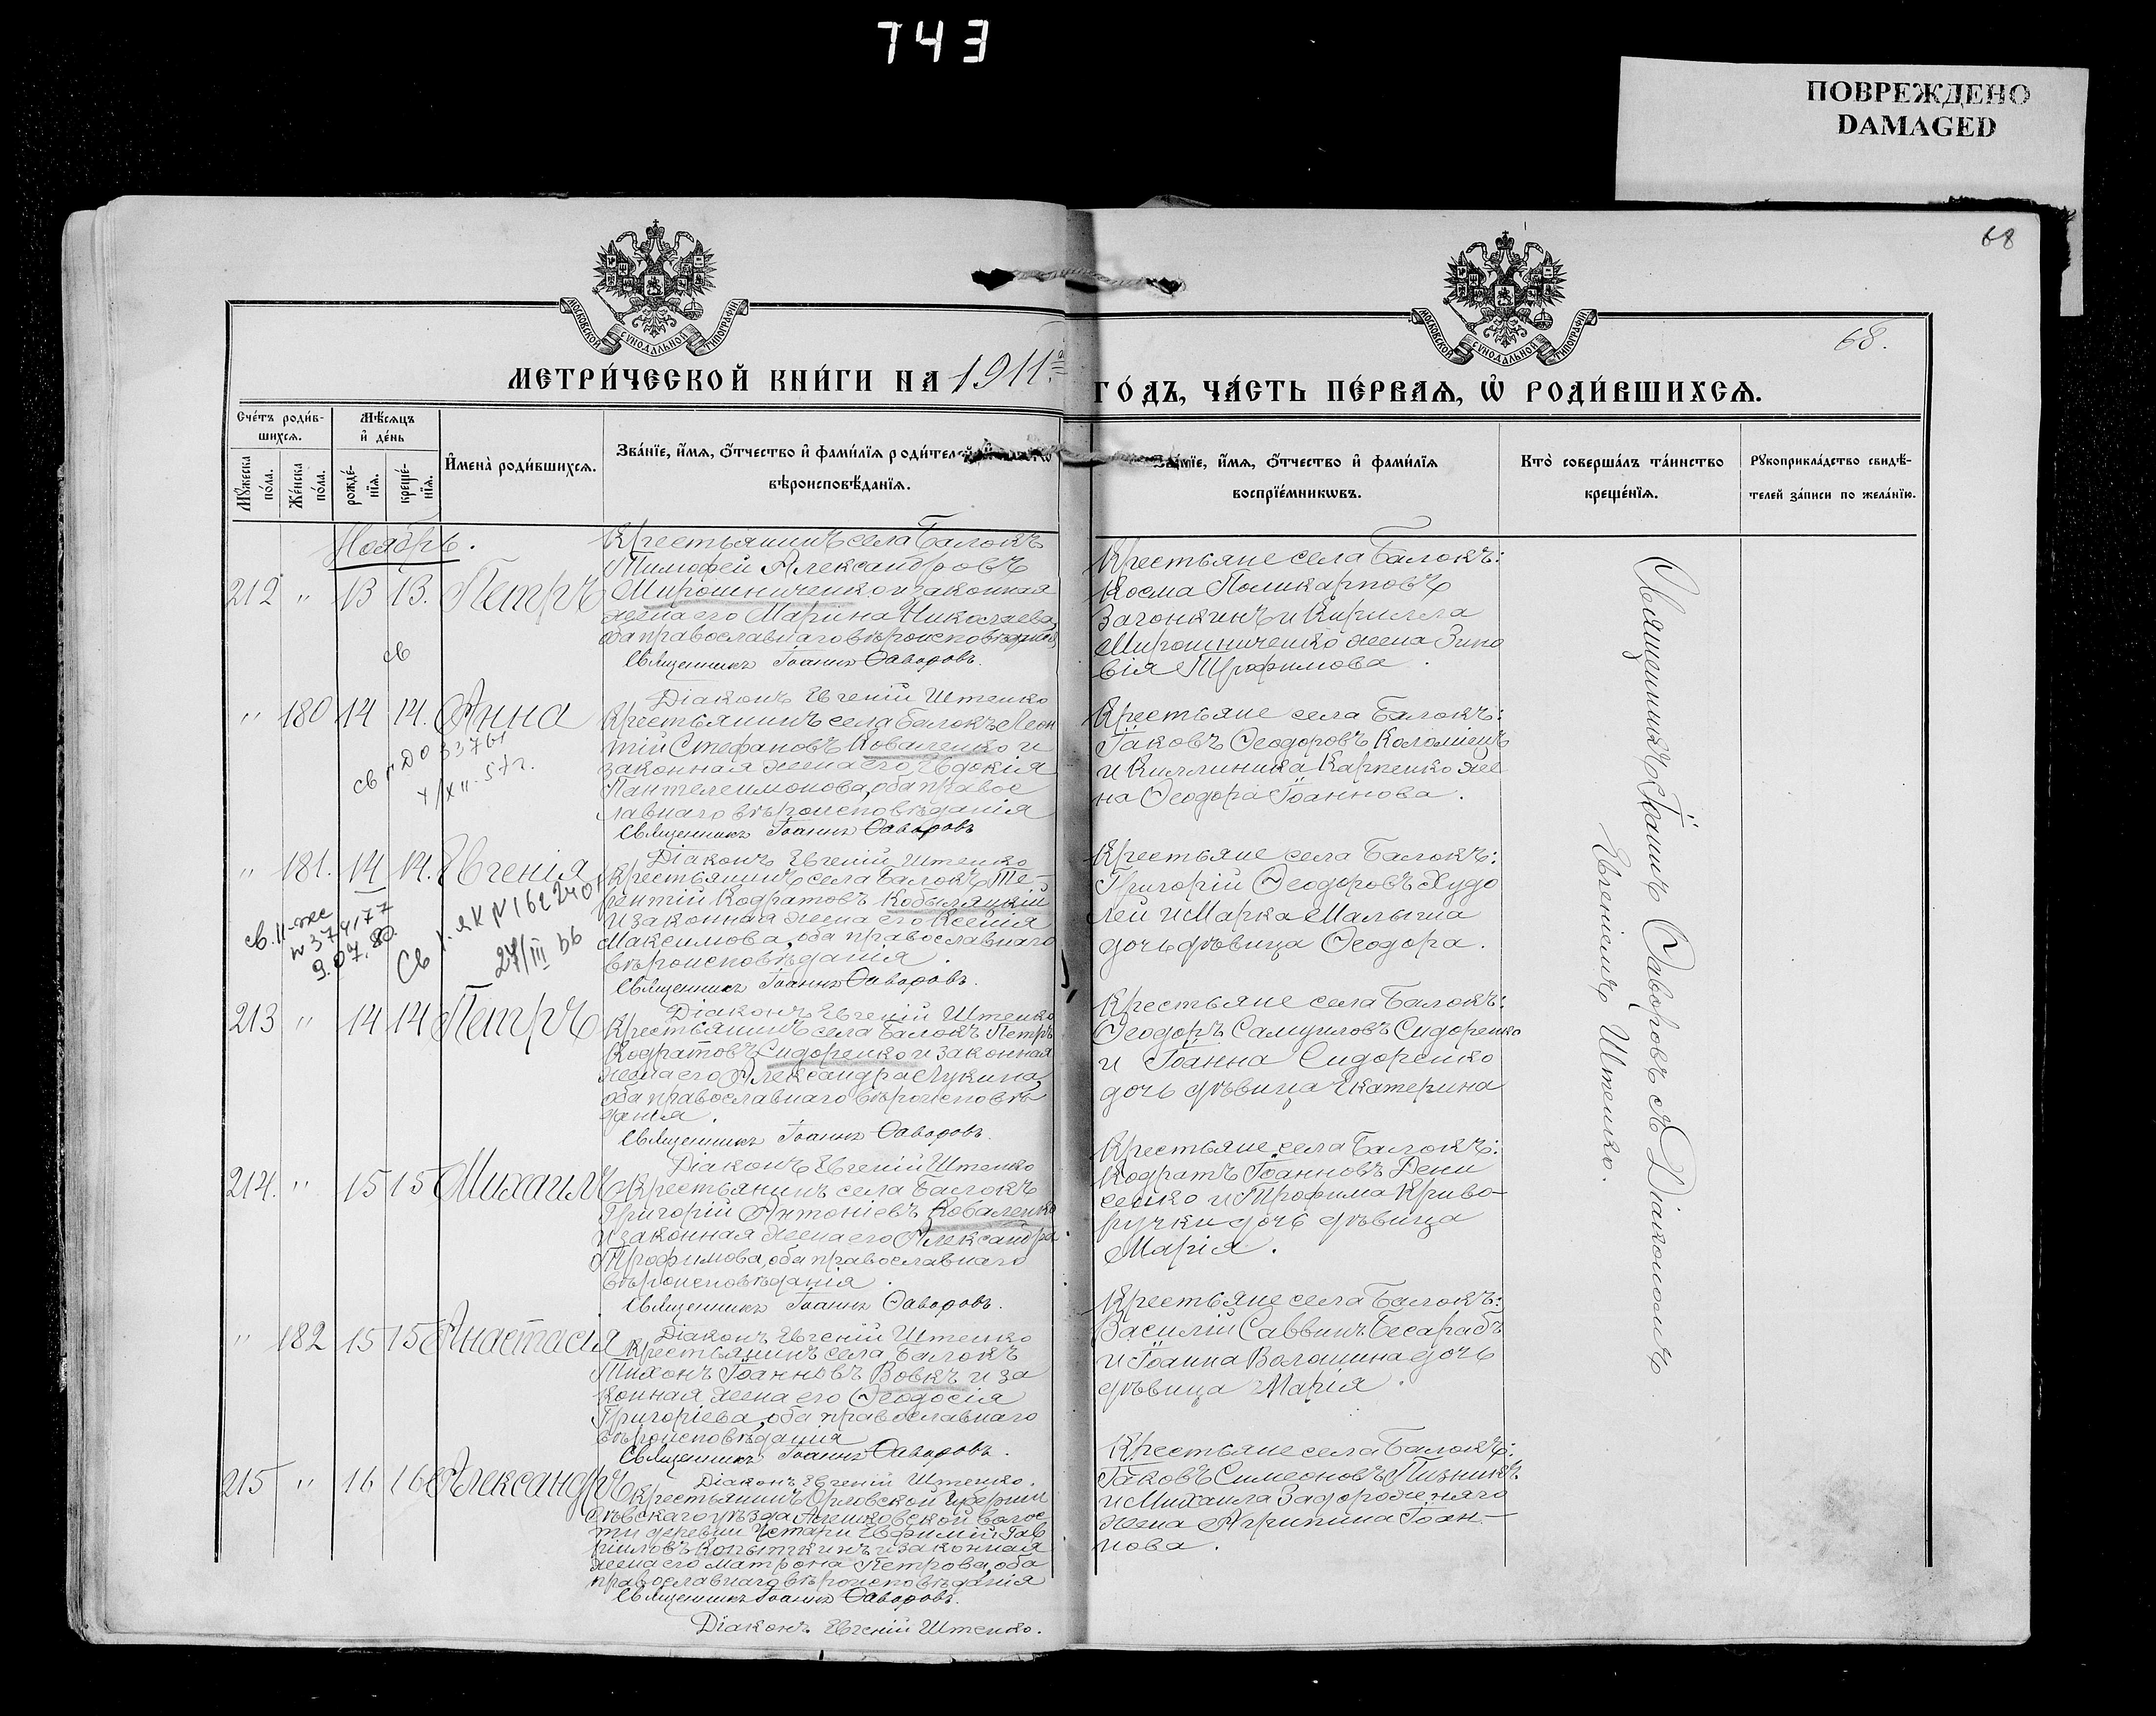 743
ПОВРЕЖДЕНО
DAMAGED
68
МОСКОВСКОЙ СѴНОДАЛЬНОЙ ТИПОГРАФІИ
МОСКОВСКОЙ СѴНОДАЛЬНОЙ ТИПОГРАФІИ
68.
МЕТРИ́ЧЕСКОЙ КНИ́ГИ НА 1911й
ГО́ДЪ, ЧА́СТЬ ПЕ́РВАѦ, Ѡ҆ РОДИ́ВШИХСѦ.
Сче́тъ роди́в-
шихсѧ.
Мѣ́сѧцъ
и҆ де́нь
Мꙋ́жеска
по́ла.
Же́нска
по́ла.
рожде́-
нїѧ.
креще́-
нїѧ.
И҆мена̀ роди́вшихсѧ.
Зва́нїе, и҆́мѧ, ѻ҆́тчество и҆ фами́лїѧ роди́телей
вѣроисповѣ́данїѧ.
Зва́нїе, и҆́мѧ, ѻ҆́тчество и҆ фами́лїѧ
воспрїе́мникѡвъ.
Кто̀ соверша́лъ та́инство
креще́нїѧ.
Рꙋкоприкла́дство свидѣ́-
телей за́писи по жела́нїю.
Ноябрь.
212 " 13 13. Петръ
Крестьянинъ села Балокъ
Тимофей Александровъ
Мирошниченко и законная
жена его Марина Николаева,
оба православнаго вѣроисповѣданія
Священникъ Іоаннъ Ѳаворовъ.
Діаконъ Евгеній Штепко
Крестьяне села Балокъ:
Косма Поликарповъ
Загонкинъ и Кирилла
Мирошниченко жена Зино
вія Трофимова.
св
" 180 14 14. Анна
Крестьянинъ села Балокъ Леон
тій Стефановъ Коваленко и
законная жена его Евдокія
Пантелеимонова, оба правос
лавнаго вѣроисповѣданія
Священникъ Іоаннъ Ѳаворовъ
Діаконъ Евгеній Штепко
Крестьяне села Балокъ:
Іаковъ Ѳеодоровъ Коломіецъ
и Киллиника Карпенко же
на Ѳеодора Іоаннова.
" 181. 14 14. Евгенія
св. II-
9.07.80.
27/III 56
Крестьянинъ села Балокъ Те-
рентій Кодратовъ Кобыляцкій
и законная жена его Ксенія
Максимова, оба православнаго
вѣроисповѣданія.
Священникъ Іоаннъ Ѳаворовъ.
Діаконъ Евгеній Штепко
Крестьяне села Балокъ:
Григорій Ѳеодоровъ Худо
лей и Марка Малыша
дочь дѣвица Ѳеодора.
213 " 14 14 Петръ
Крестьянинъ села Балокъ Петръ
Кодратовъ Сидоренко и законная
жена его Александра Лукина,
оба православнаго вѣроисповѣ
данія.
Священникъ Іоаннъ Ѳаворовъ.
Діаконъ Евгеній Штепко
Крестьяне села Балокъ:
Ѳеодоръ Самуиловъ Сидоренко
и Іоанна Сидоренко
дочь дѣвица Екатерина
214. " 15 15 Михаилъ
Крестьянинъ села Балокъ
Григорій Антоніевъ Коваленко
и законная жена его Александра
Трофимова, оба православнаго
вѣроисповѣданія.
Священникъ Іоаннъ Ѳаворовъ.
Діаконъ Евгеній Штепко
Крестьяне села Балокъ:
Кодратъ Іоанновъ Дени
сенко и Трофима Криво-
ручки дочь дѣвица
Марія.
" 182 15 15 Анастасія
Крестьянинъ села Балокъ
Тихонъ Іоанновъ Вовкъ и за
конная жена его Ѳеодосія
Григоріева, оба православнаго
вѣроисповѣданія
Священникъ Іоаннъ Ѳаворовъ.
Діаконъ Евгеній Штепко.
Крестьяне села Балокъ:
Василій Саввинъ Бесарабъ
и Іоанна Волошина дочь
дѣвица Марія.
215 " 16 16 Александръ
Крестьянинъ Орловской губерніи
Сѣвскаго уѣзда Алешковской волос
ти деревни Устари Евфимій Гав
ріиловъ Копыткинъ и законная
жена его Матрона Петрова, оба
православнаго вѣроисповѣданія
Священникъ Іоаннъ Ѳаворовъ.
Діаконъ Евгеній Штепко.
Крестьяне села Балокъ:
Іаковъ Симеоновъ Пизникъ
и Михаила Задорожняго
жена Агрипина Іоан-
нова.
Священникъ Іоаннъ Ѳаворовъ съ Діакономъ
Евгеніемъ Штепко.